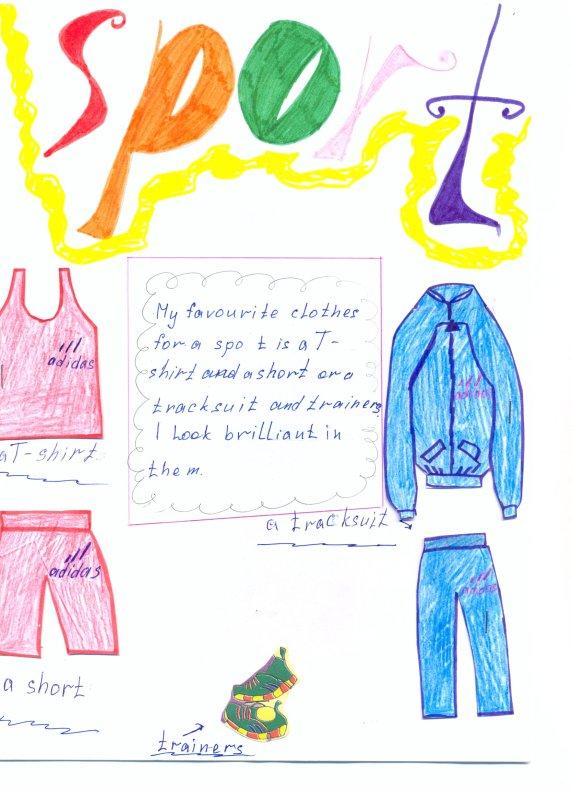 sport
My favourite clothes
for a spo t is a T-
shirt and a short or a
tracksuit and trainers
I Look brilliant in
them.
adidas
a T-shirt
adidas
a tracksuit
adidas
a short
adidas
trainers